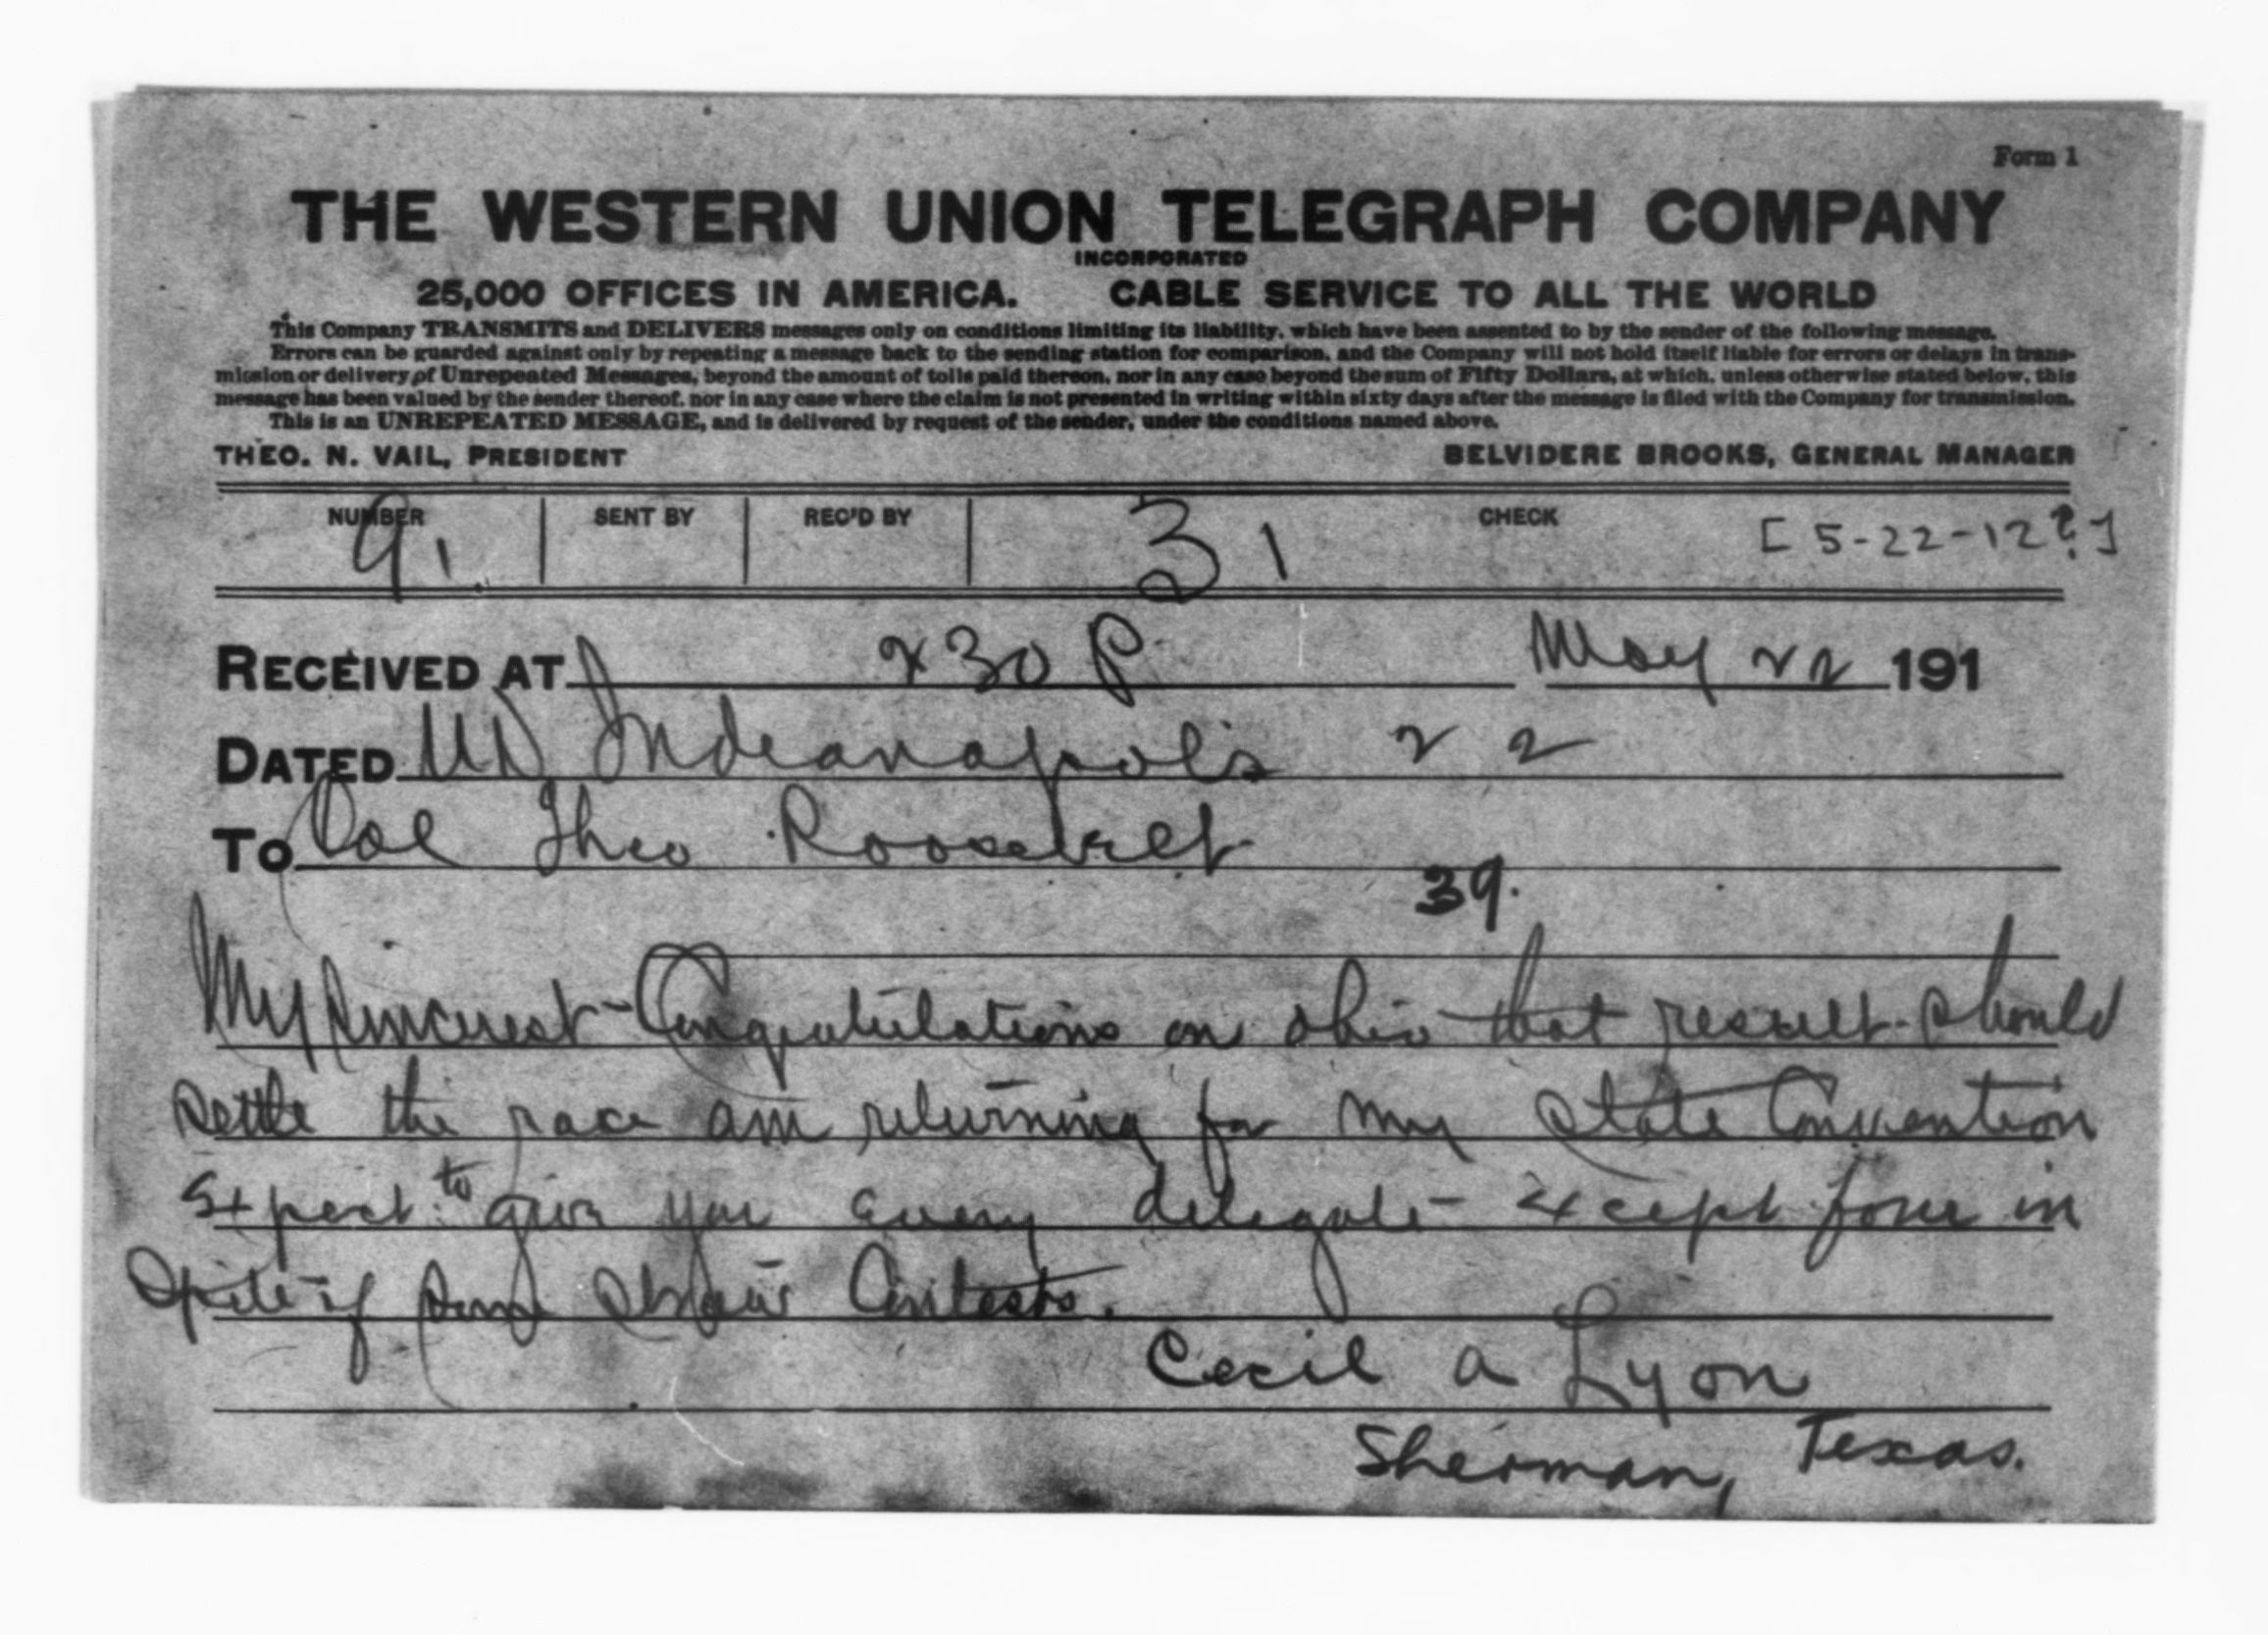 Form 1
THE WESTERN UNION TELEGRAPH COMPANY
INCORPORATED
25,000 OFFICES IN AMERICA. CABLE SERVICE TO ALL THE WORLD
This Company TRANSMITS and DELIVERS messages only on conditions limiting its liability, which have been assented to by the sender of the following message.
Errors can be guarded against only by repeating a message back to the sending station for comparison, and the Company will not hold itself liable for errors or delays in trans-
mission or delivery of Unrepeated Messages, beyond the amount of tolls paid thereon, nor in any case beyond the sum of Fifty Dollars, at which, unless otherwise stated below, this
message has been valued by the sender thereof, nor in any case where the claim is not presented in writing within sixty days after the message is filed with the Company for transmission.
This is an UNREPEATED MESSAGE, and is delivered by request of the sender, under the conditions named above.
THEO. N. VAIL, PRESIDENT BELVIDERE BROOKS, GENERAL MANAGER
NUMBER SENT BY REC'D BY CHECK
91 31 [5-22-12?]
RECEIVED AT 230 P May 22 191
DATED Indianapolis 22
To Col Theo Roosevelt
39.
My Sincerest Congratulations on Ohio that result should
settle the race am returning for my State Convention
Expect to give you every delegate except four in
Spite of some Contests.
Cecil A Lyon
Sherman, Texas.